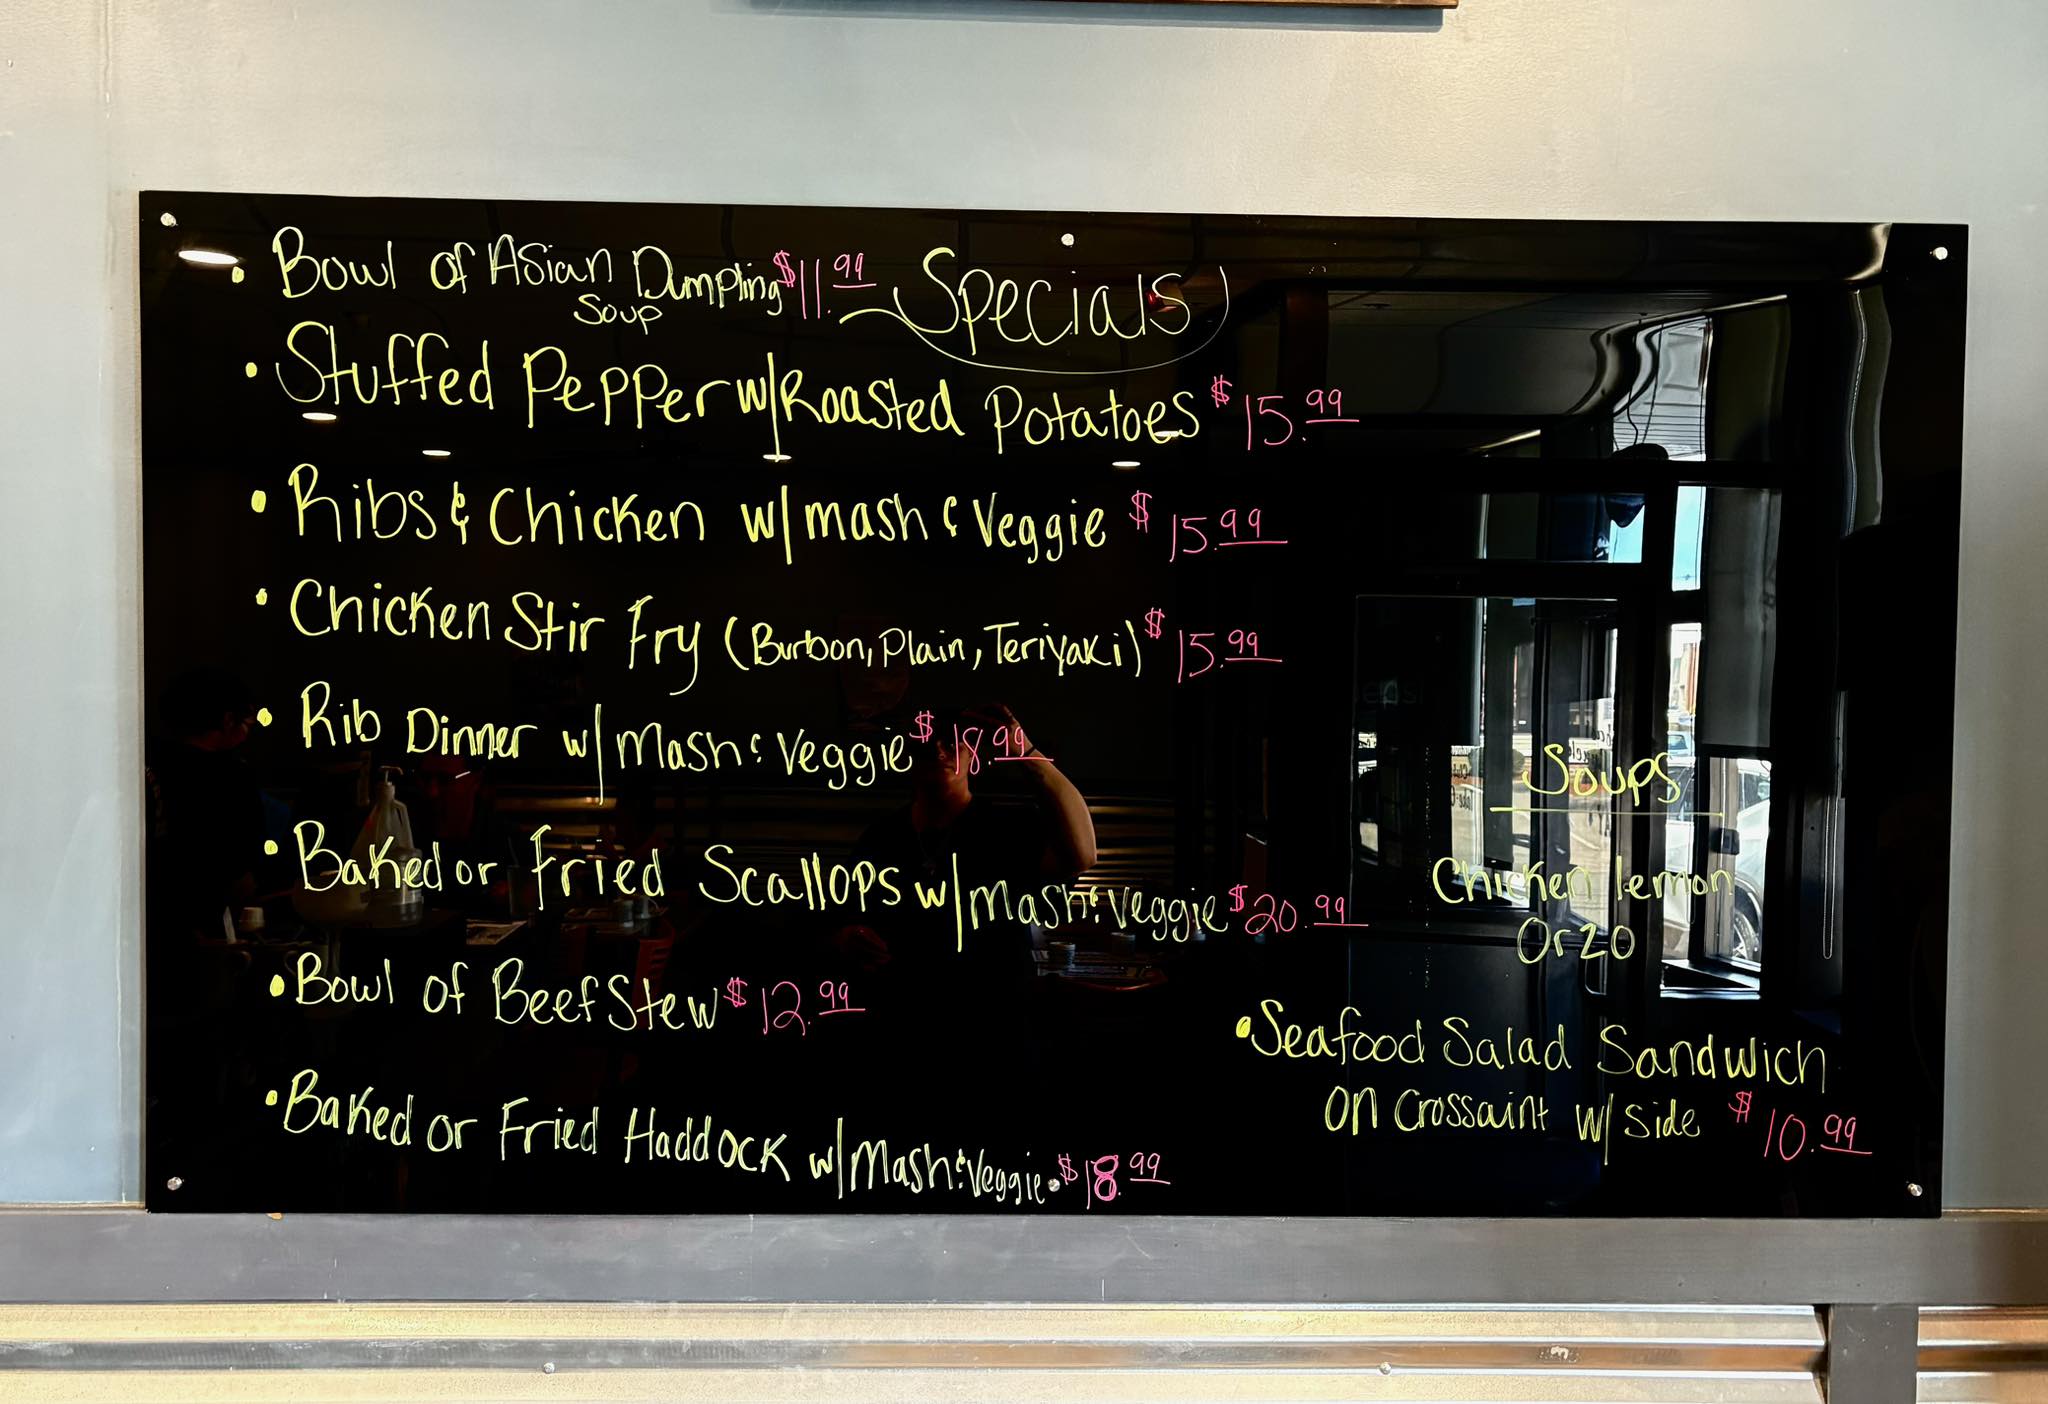 Specials
• Bowl of Asian Dumpling $11.99
Soup
• Stuffed Pepper w/Roasted Potatoes $15.99
• Ribs & Chicken w/mash & Veggie $15.99
• Chicken Stir Fry (Burbon, Plain, Teriyaki) $15.99
• Rib Dinner w/Mash & Veggie $18.99
• Baked or Fried Scallops w/Mash & Veggie $20.99
• Bowl of Beef Stew $12.99
• Baked or Fried Haddock w/Mash & Veggie $18.99
Soups
Chicken lemon
Orzo
• Seafood Salad Sandwich
on Crossaint w/ side $10.99